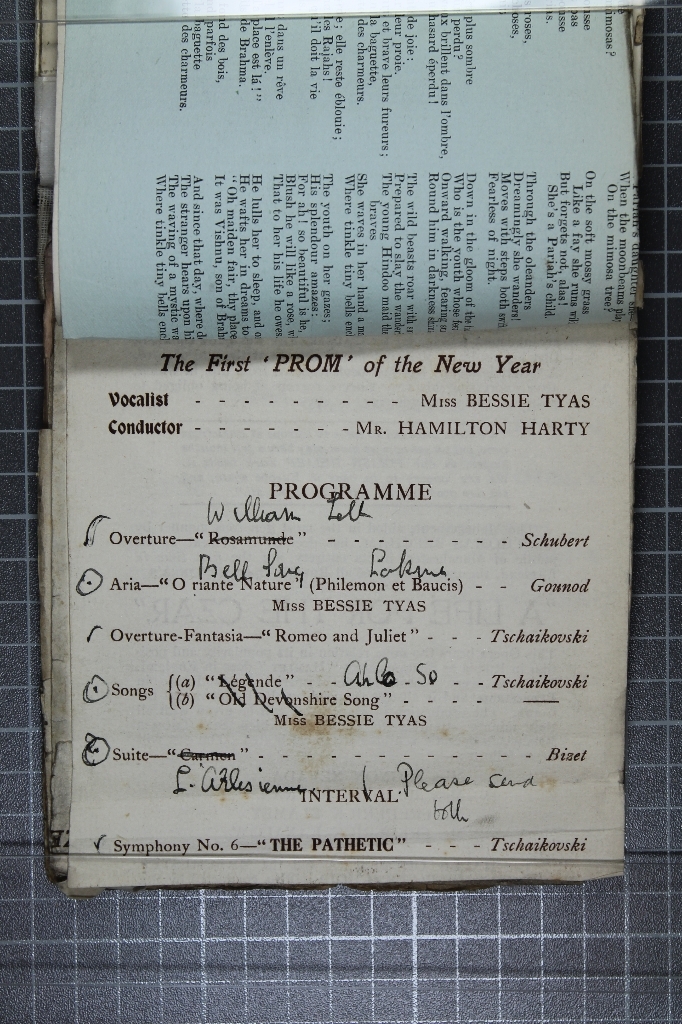 mosas?
asse
pas
usse
roses,
oses,
plus sombre
perdu?
ax brillent dans l'ombre,
hasard éperdu!
de joie:
eur proie.
et brave leurs fureurs;
la baguette,
des charmeurs.
e; elle reste éblouie;
es Rajahs!
'il doit la vie
dans un rêve
l'enlève.
place est là!"
de Brahma.
d des bois,
parfois
baguette
des charmeurs.
daughter
When the moonbeams
On the mimosa tree?
On the soft mossy grass
Like a fay she runs
But forgets not, alas!
She's a Pariah's child.
Through the oleanders
Dreamingly she wanders!
Moves with steps both
Fearless of night.
Down in the gloom of the
Who is the youth whose
Onward walking, fearing
Round him in darkness
The wild beasts roar with
Prepared to slay the
The young Hindoo maid
braves
She waves in her hand a
Where tinkle tiny bells
The youth on her gazes;
His splendour amazes;
For ah! so beautiful is he,
Blush he will like a rose,
That to her his life he owes
He lulls her to sleep, and
He wafts her in dreams to
"Oh maiden fair, thy place
It was Vishnu, son of
And since that day, where
The stranger hears upon
The waving of a mystic
Where tinkle tiny bells
The First 'PROM' of the New Year
Vocalist - - - - - - - - - Miss BESSIE TYAS
Conductor - - - - - - - Mr. HAMILTON HARTY
PROGRAMME
William Tell
Overture—"Rosamunde" - - - - - - - - Schubert
Bell Song Lakme
Aria—"O riante Nature" (Philemon et Baucis) - - Gounod
Miss BESSIE TYAS
Overture-Fantasia—"Romeo and Juliet" - - - Tschaikovski
Songs (a) "Légende" - - Ah lo So - Tschaikovski
(b) "Old Devonshire Song" - - - - ——
Miss BESSIE TYAS
Suite—"Carmen" - - - - - - - - - - Bizet
L'Arlesienne Please send
INTERVAL
both
Symphony No. 6—"THE PATHETIC" - - - Tschaikovski